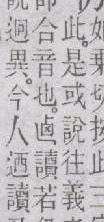 如乘切按此
此。是或說往義
部合音也。卥讀若
說迥異。今人迺讀